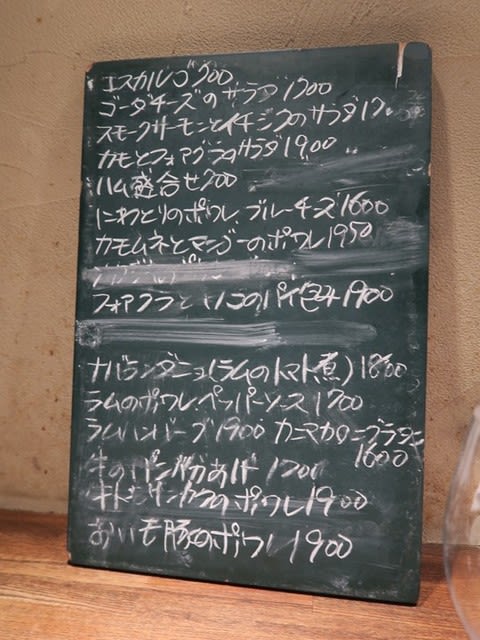 エスカルゴ 700
ゴーダチーズのサラダ 1200
スモークサーモンとイチジクのサラダ
カモとフォアグラのサラダ 1900
ハム盛合せ 700
にわとりのポワレ、ブルーチーズ 1600
カモムネとマンゴーのポワレ 1950
フォアグラと のパイ包み 1900
ナバランダニョ(ラムのトマト煮) 1800
ラムのポワレペッパーソース 1700
ラムハンバーグ 1900 カニマカロニグラタン
1600
牛の パン粉あげ 1200
のポワレ 1900
豚のポワレ 1900